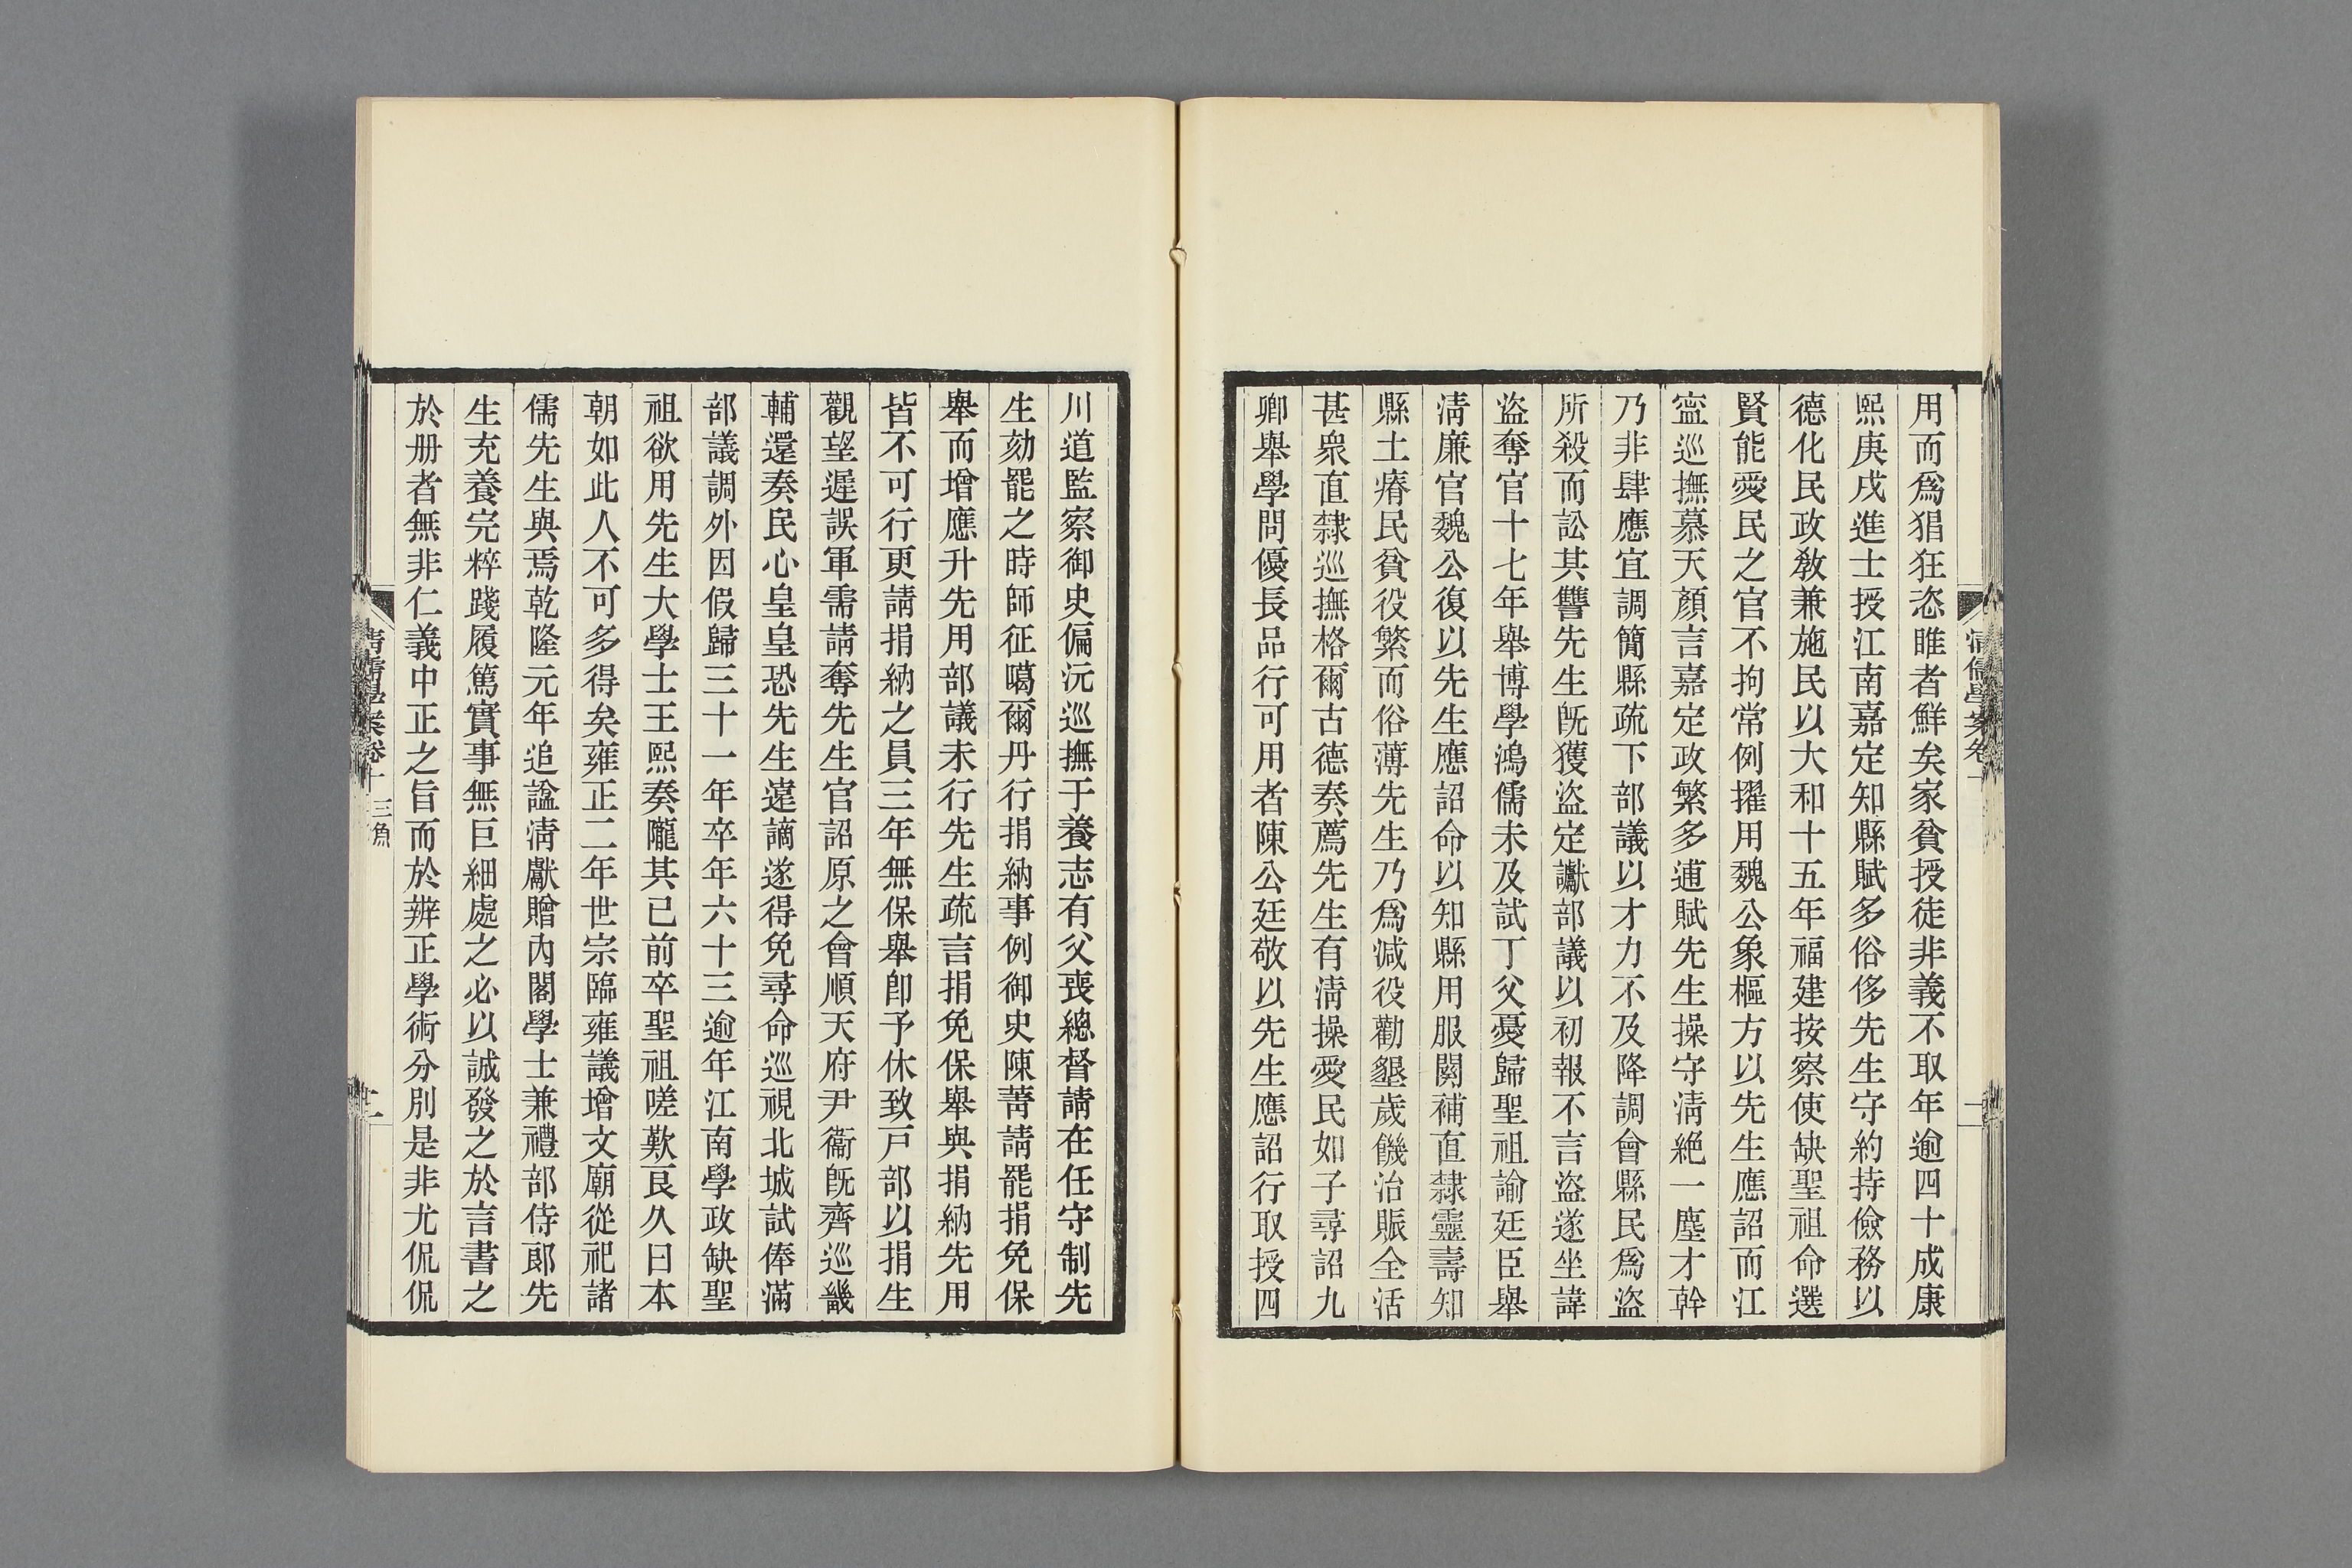 用而爲猖狂恣睢者鮮矣家貧授徒非義不取年逾四十成康
熙庚戌進士授江南嘉定知縣賦多俗侈先生守約持儉務以
德化民政敎兼施民以大和十五年福建按察使缺聖祖命選
賢能愛民之官不拘常例擢用魏公象樞方以先生應詔而江
寍巡撫慕天顏言嘉定政繁多逋賦先生操守淸絶一塵才幹
乃非肆應宜調簡縣疏下部議以才力不及降調會縣民爲盜
所殺而訟其讐先生旣獲盜定讞部議以初報不言盜遂坐諱
盜奪官十七年舉博學鴻儒未及試丁父憂歸聖祖諭廷臣舉
淸廉官魏公復以先生應詔命以知縣用服闋補直隸靈壽知
縣土瘠民貧役繁而俗薄先生乃爲減役勸墾歲饑治賑全活
甚衆直隸巡撫格爾古德奏薦先生有淸操愛民如子尋詔九
卿舉學問優長品行可用者陳公廷敬以先生應詔行取授四
川道監察御史偏沅巡撫于養志有父喪總督請在任守制先
生劾罷之時師征噶爾丹行捐納事例御史陳菁請罷捐免保
舉而增應升先用部議未行先生疏言捐免保舉與捐納先用
皆不可行更請捐納之員三年無保舉卽予休致戶部以捐生
觀望遲誤軍需請奪先生官詔原之會順天府尹衞旣齊巡畿
輔還奏民心皇皇恐先生遠謫遂得免尋命巡視北城試俸滿
部議調外因假歸三十一年卒年六十三逾年江南學政缺聖
祖欲用先生大學士王熙奏隴其已前卒聖祖嗟歎良久曰本
朝如此人不可多得矣雍正二年世宗臨雍議增文廟從祀諸
儒先生與焉乾隆元年追諡淸獻贈內閣學士兼禮部侍郎先
生充養完粹踐履篤實事無巨細處之必以誠發之於言書之
於册者無非仁義中正之旨而於辨正學術分別是非尤侃侃
淸儒學案卷十